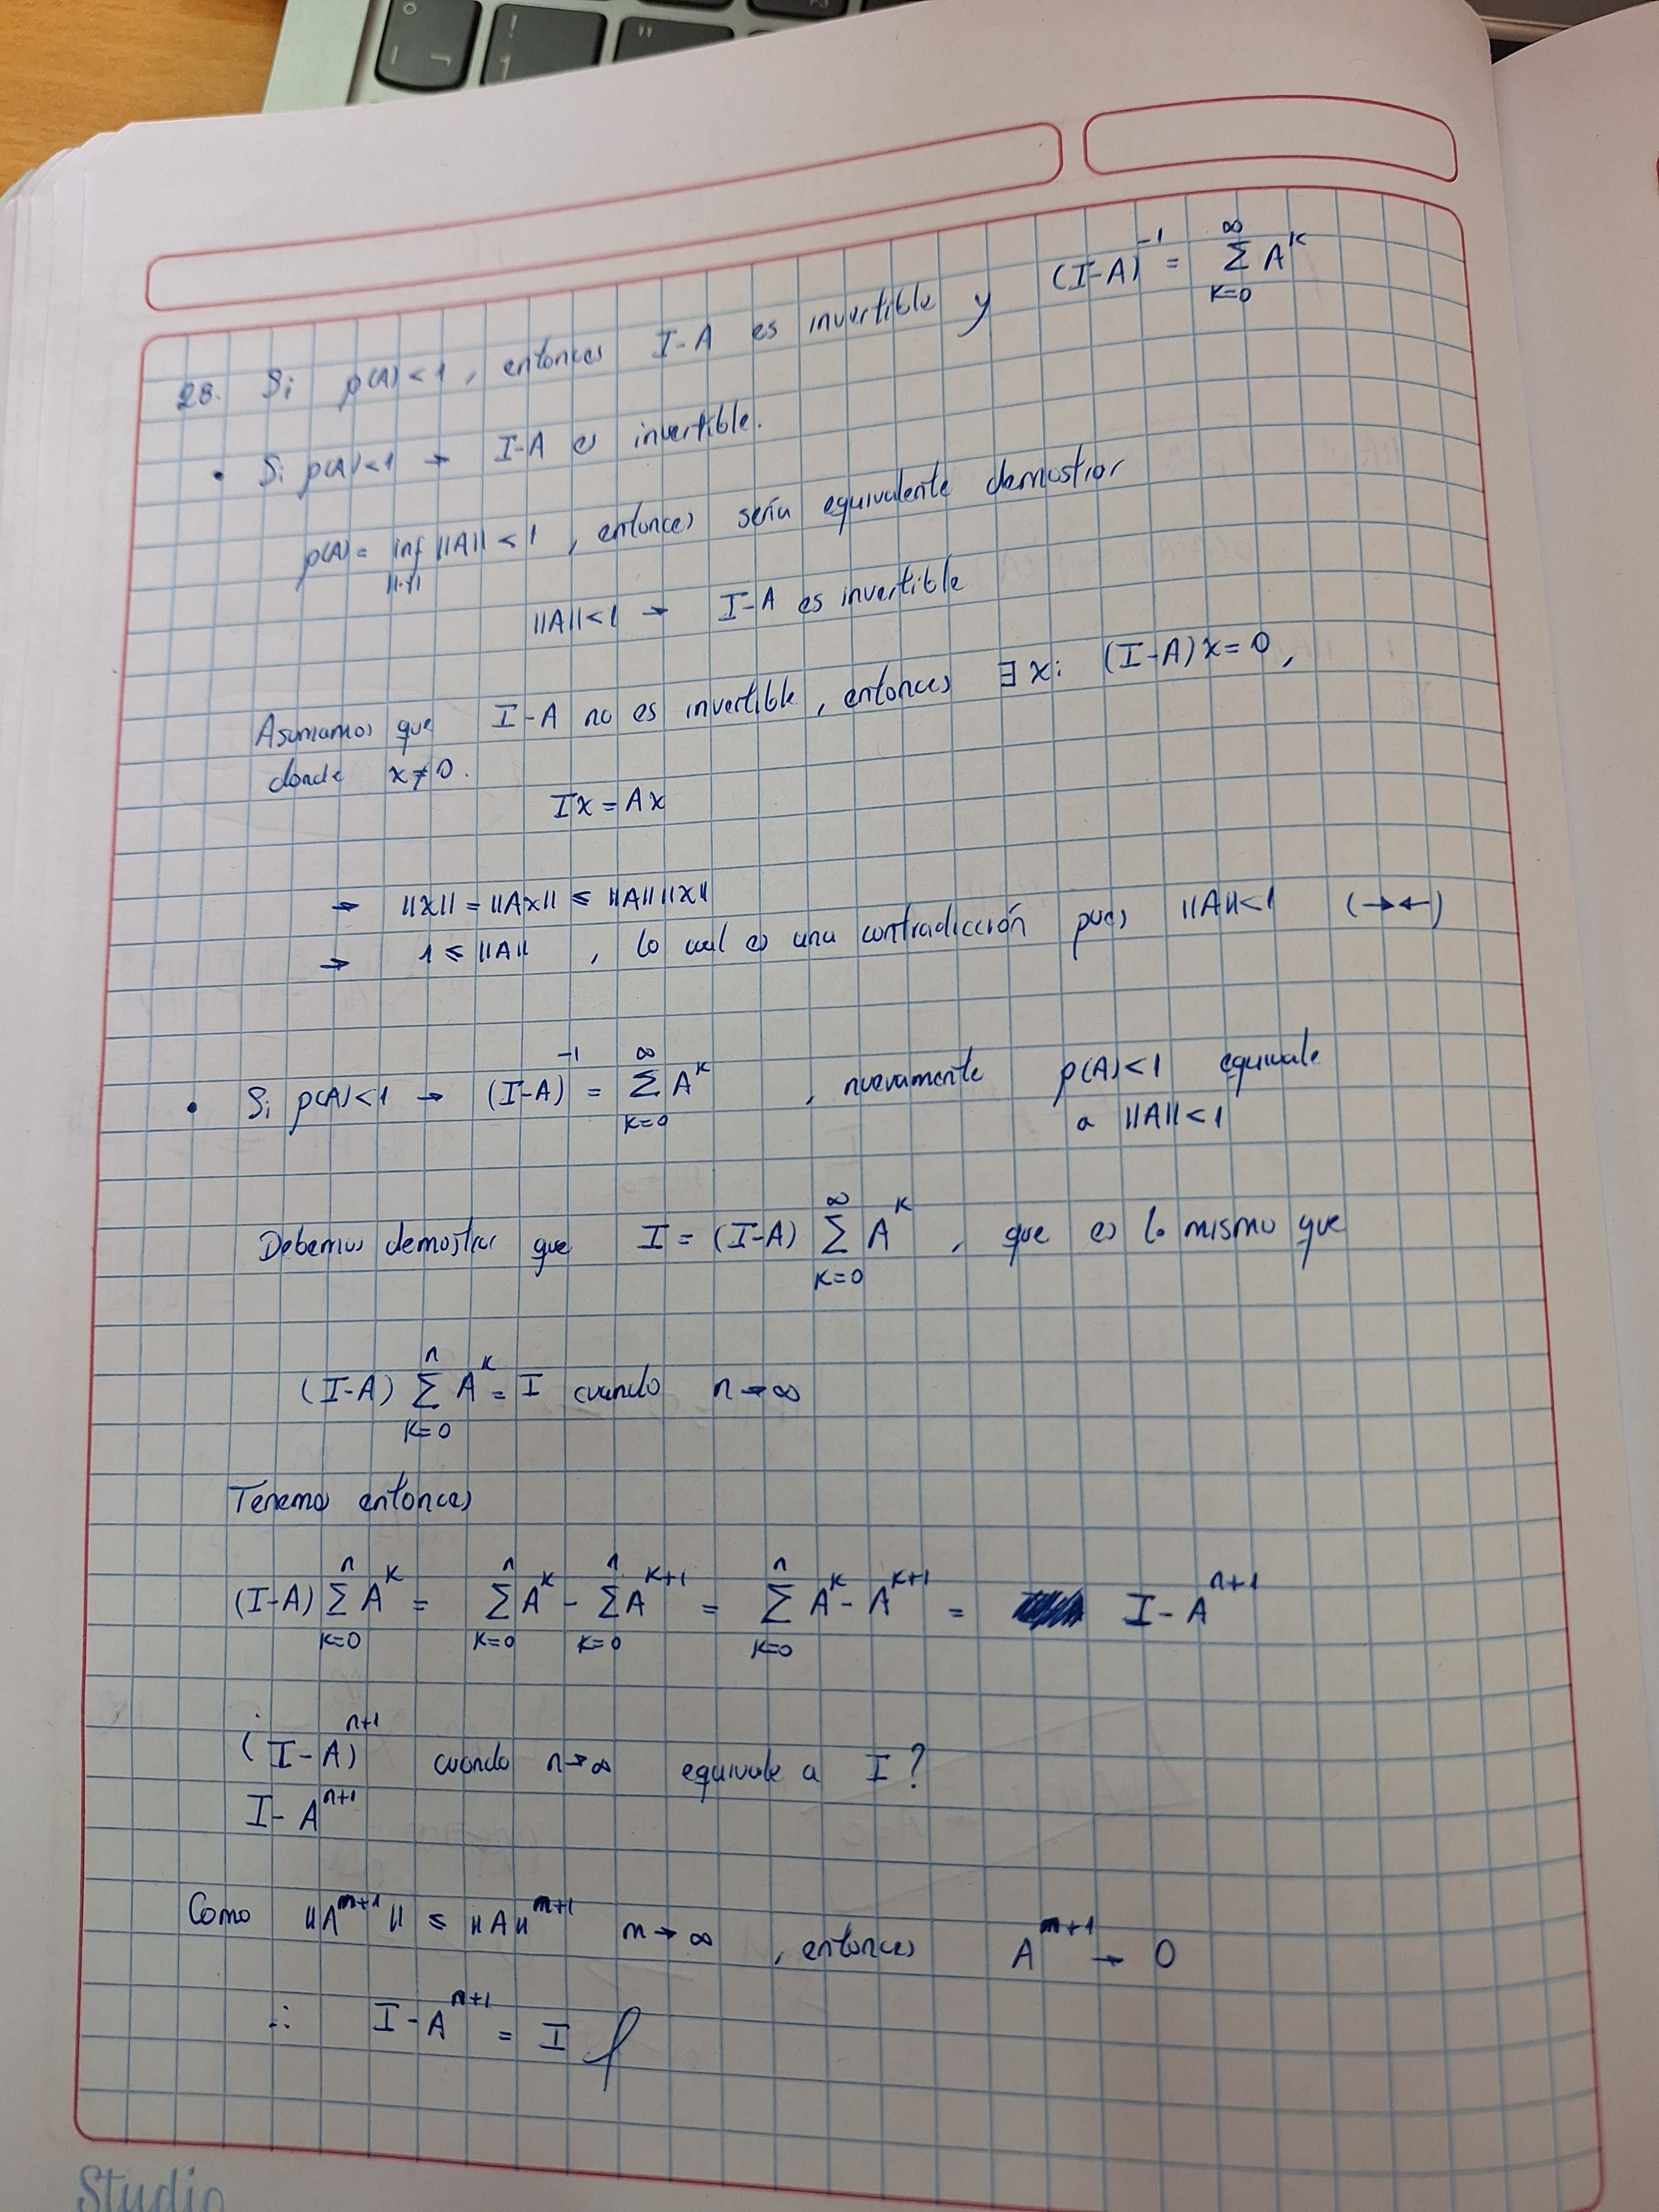 28. Si ρ(A)<1, entonces I-A es invertible y (I-A)^{-1} = \sum_{k=0}^{∞} A^k
• Si ρ(A)<1 → I-A es invertible.
ρ(A) = inf_{||·||} ||A|| < 1, entonces sería equivalente demostrar
||A||<1 → I-A es invertible
Asumamos que I-A no es invertible, entonces ∃x: (I-A)x=0,
donde x≠0.
Ix = Ax
→ ||x|| = ||Ax|| ≤ ||A|| ||x||
→ 1 ≤ ||A||, lo cual es una contradicción pues ||A||<1 (→←)
• Si ρ(A)<1 → (I-A)^{-1} = \sum_{k=0}^{∞} A^k, nuevamente ρ(A)<1 equivale
a ||A||<1
Debemos demostrar que I = (I-A) \sum_{k=0}^{∞} A^k, que es lo mismo que
(I-A) \sum_{k=0}^{n} A^k = I cuando n→∞
Tenemos entonces
(I-A) \sum_{k=0}^{n} A^k = \sum_{k=0}^{n} A^k - \sum_{k=0}^{n} A^{k+1} = \sum_{k=0}^{n} A^k - A^{k+1} = I - A^{n+1}
¿(I-A)^{n+1} cuando n→∞ equivale a I?
I - A^{n+1}
Como ||A^{m+1}|| ≤ ||A||^{m+1} m→∞, entonces A^{m+1} → 0
∴ I - A^{n+1} = I
Studio